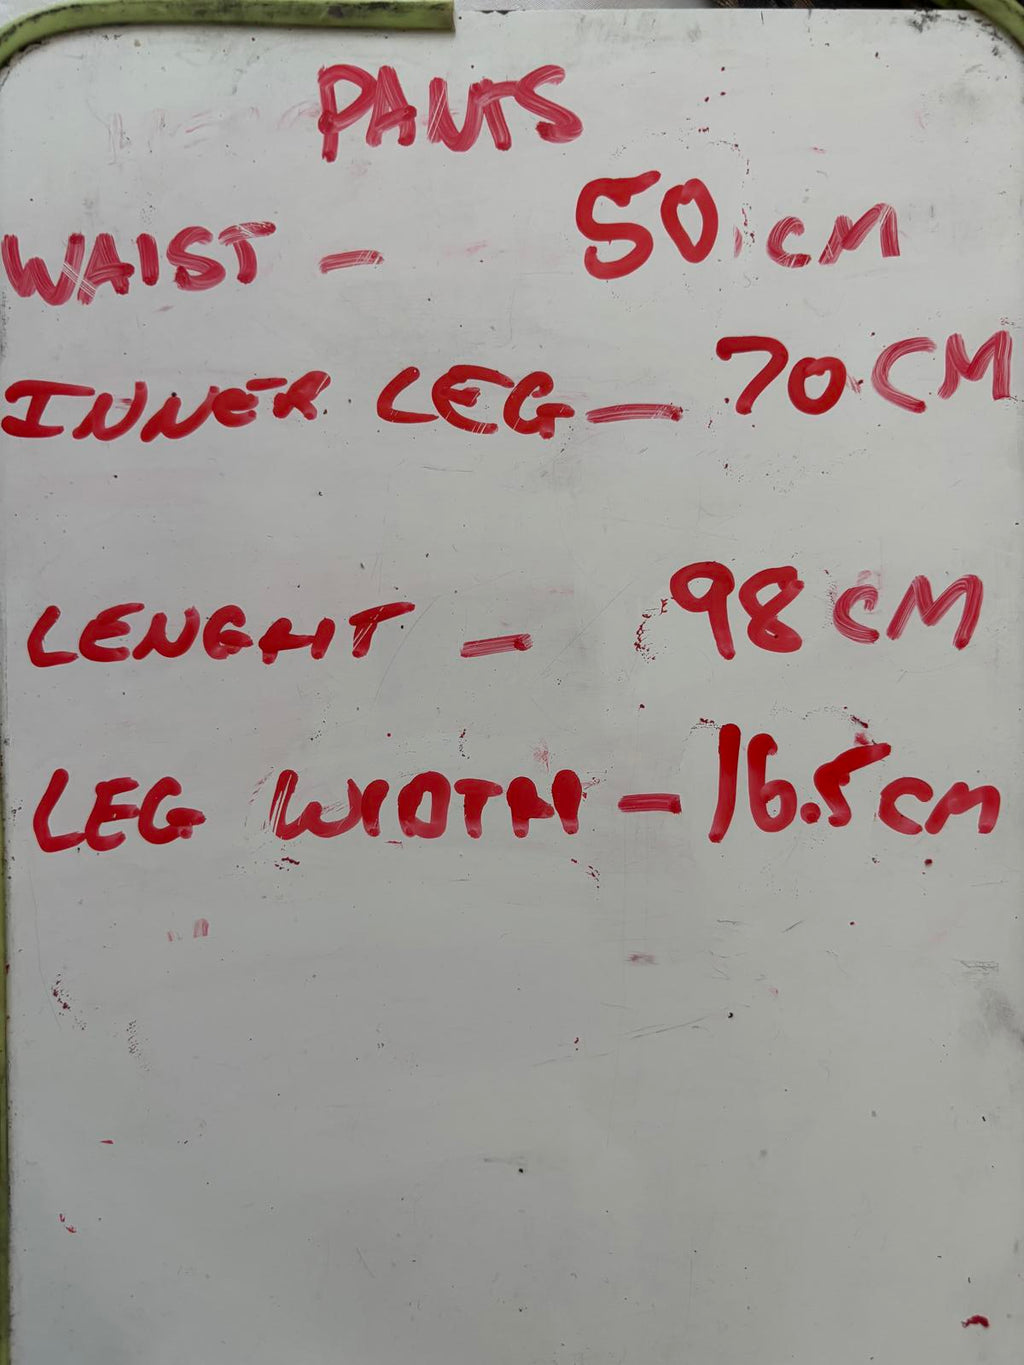 PANTS
WAIST - 50 CM
INNER LEG - 70 CM
LENGHT - 98 CM
LEG WIDTH - 16.5 CM